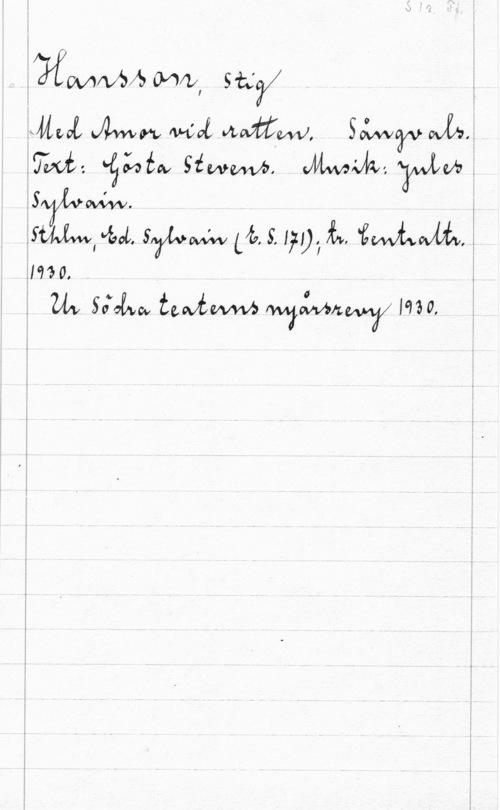 S 12. Pf.
Hansson, Stig
Med Amor vid ratten. Sångvals.
Text: Gösta Stevens. Musik: Jules
Sylvain.
Sthlm, Ed. Sylvain (E.S. 171); tr. Centraltr.
1930.
Ur Södra teaterns nyårsrevy 1930.